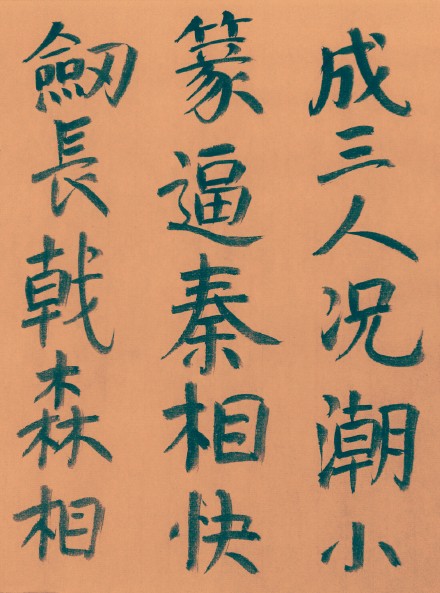 成三人况潮小
篆逼秦相快
劒長戟森相